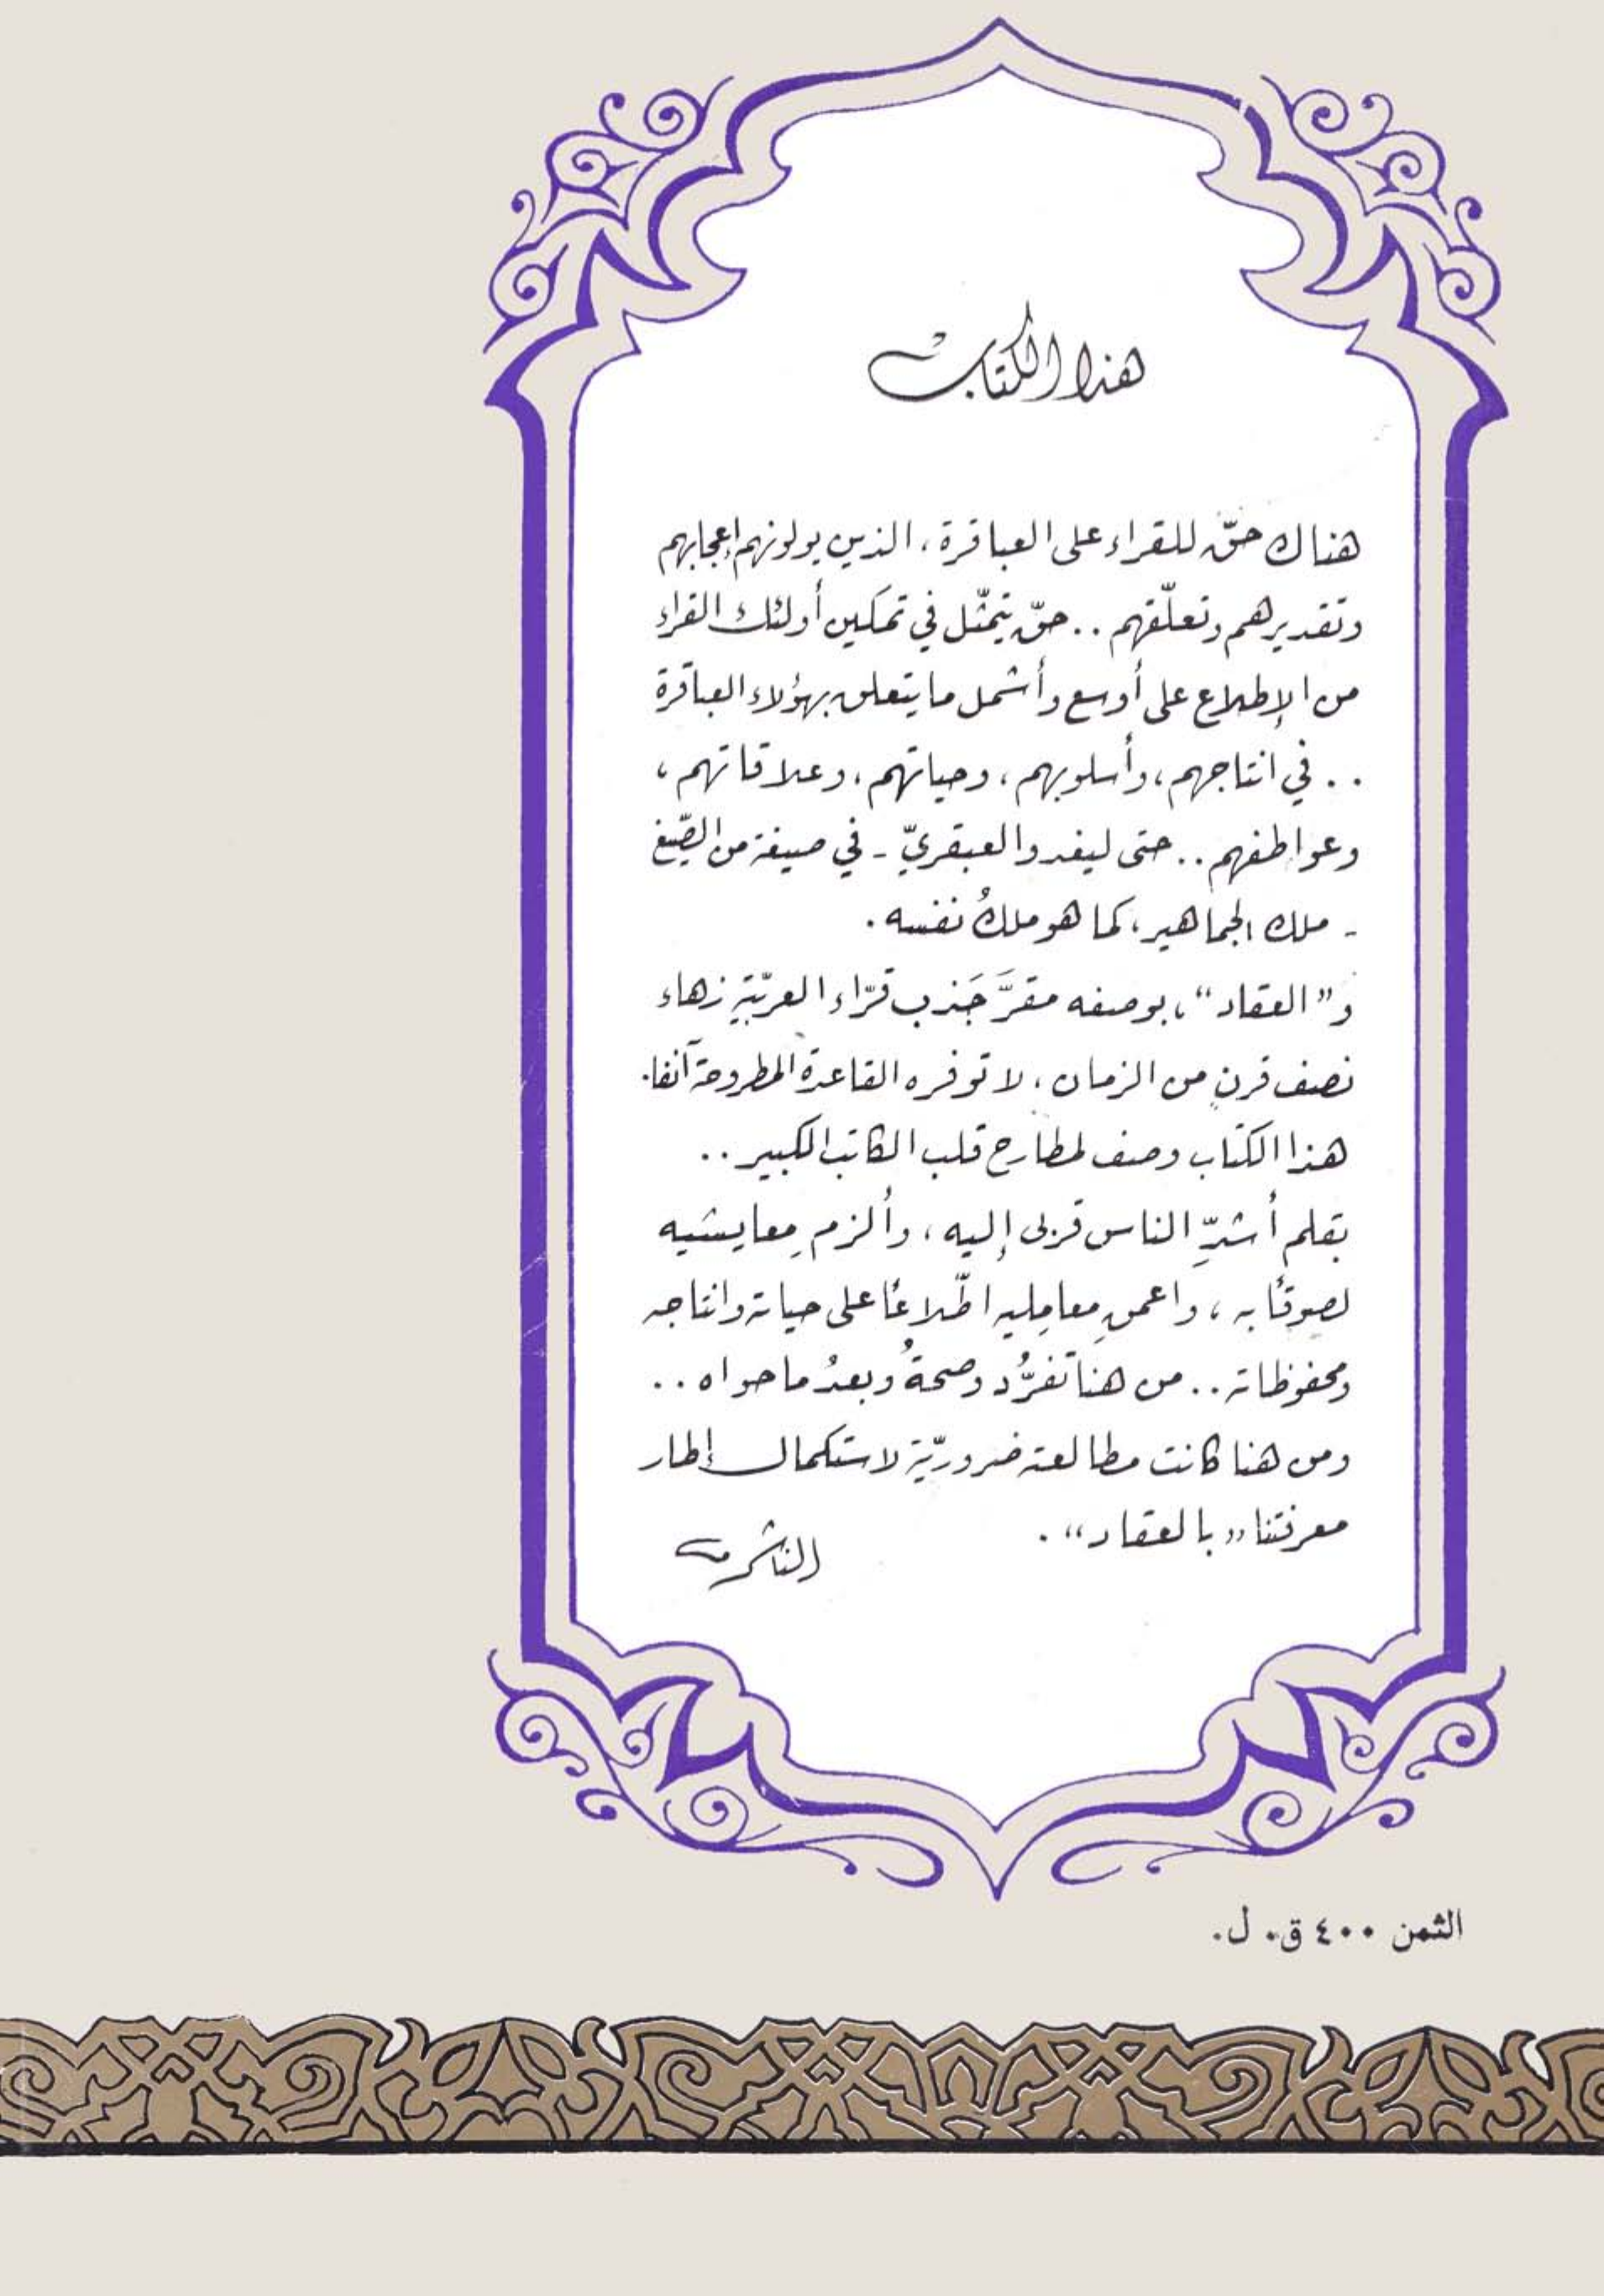 هذا الكتاب
هناك حقّ للقراء على العباقرة، الذين يولونهم إعجابهم
وتقديرهم وتعلّقهم .. حقّ يتمثّل في تمكين أولئك القراء
من الإطلاع على أوسع وأشمل ما يتعلق بهؤلاء العباقرة
.. في انتاجهم، وأسلوبهم، وحياتهم، وعلاقاتهم،
وعواطفهم .. حتى ليغدو العبقريّ - في صيغة من الصّيغ
- ملك الجماهير، كما هو ملكُ نفسه.
و"العقاد"، بوصفه مقرَّ جَذب قرّاء العربّية زهاء
نصف قرنٍ من الزمان، لا توفره القاعدة المطروحة آنفا.
هذا الكتاب وصف لمطارح قلب الكاتب الكبير ..
بقلم أشدِّ الناس قربى إليه، وألزم مِعايشيه
لصوقًا به، واعمقِ معامِليه اطّلاعًا على حياته وانتاجه
ومحفوظاته .. من هنا تفرُّد وصحةُ وبعدُ ما حواه ..
ومن هنا كانت مطالعته ضروريّة لاستكمال إطار
معرفتنا "بالعقاد".
الناشر
الثمن ٤٠٠ ق. ل.